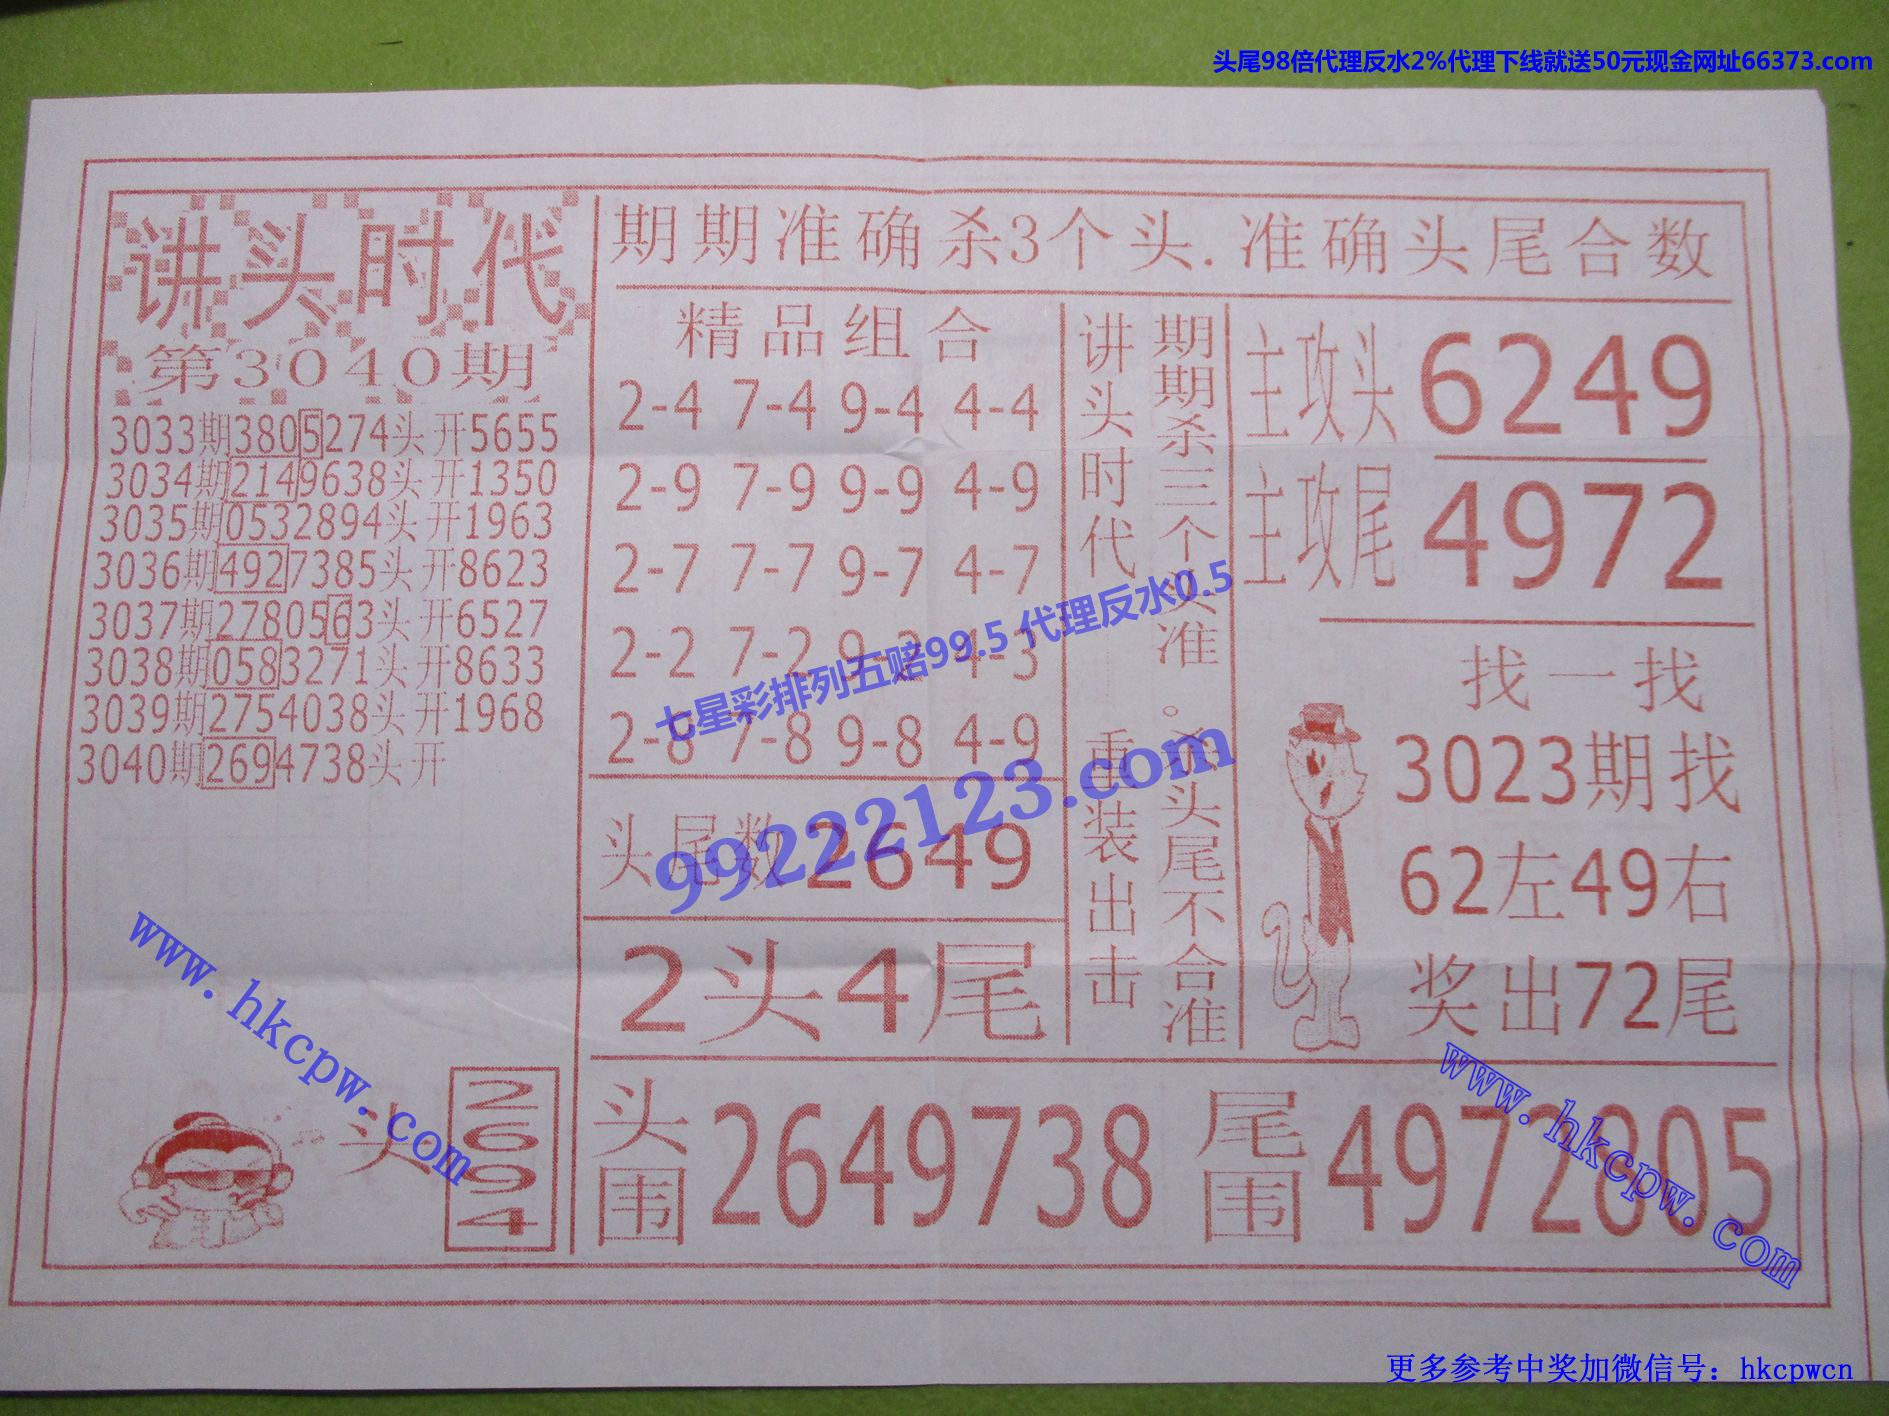 头尾98倍代理反水2%代理下线就送50元现金网址66373.com
讲头时代
第3040期
3033期3805274头开5655
3034期2149638头开1350
3035期0532894头开1963
3036期4927385头开8623
3037期2780563头开6527
3038期0583271头开8633
3039期2754038头开1968
3040期2694738头开
头
2694
期期准确杀3个头.准确头尾合数
精品组合
2-4 7-4 9-4 4-4
2-9 7-9 9-9 4-9
2-7 7-7 9-7 4-7
2-2 7-2 9-2 4-3
2-8 7-8 9-8 4-9
头尾数22649
2头4尾
讲头时代 重装出击
期期杀三个头准。杀头尾不合准
主攻头6249
主攻尾4972
找一找
3023期找
62左49右
奖出72尾
头围2649738
尾围4972805
七星彩排列五赔99.5 代理反水0.5
99222123.com
www.hkcpw.com
www.hkcpw.com
更多参考中奖加微信号：hkcpwcn